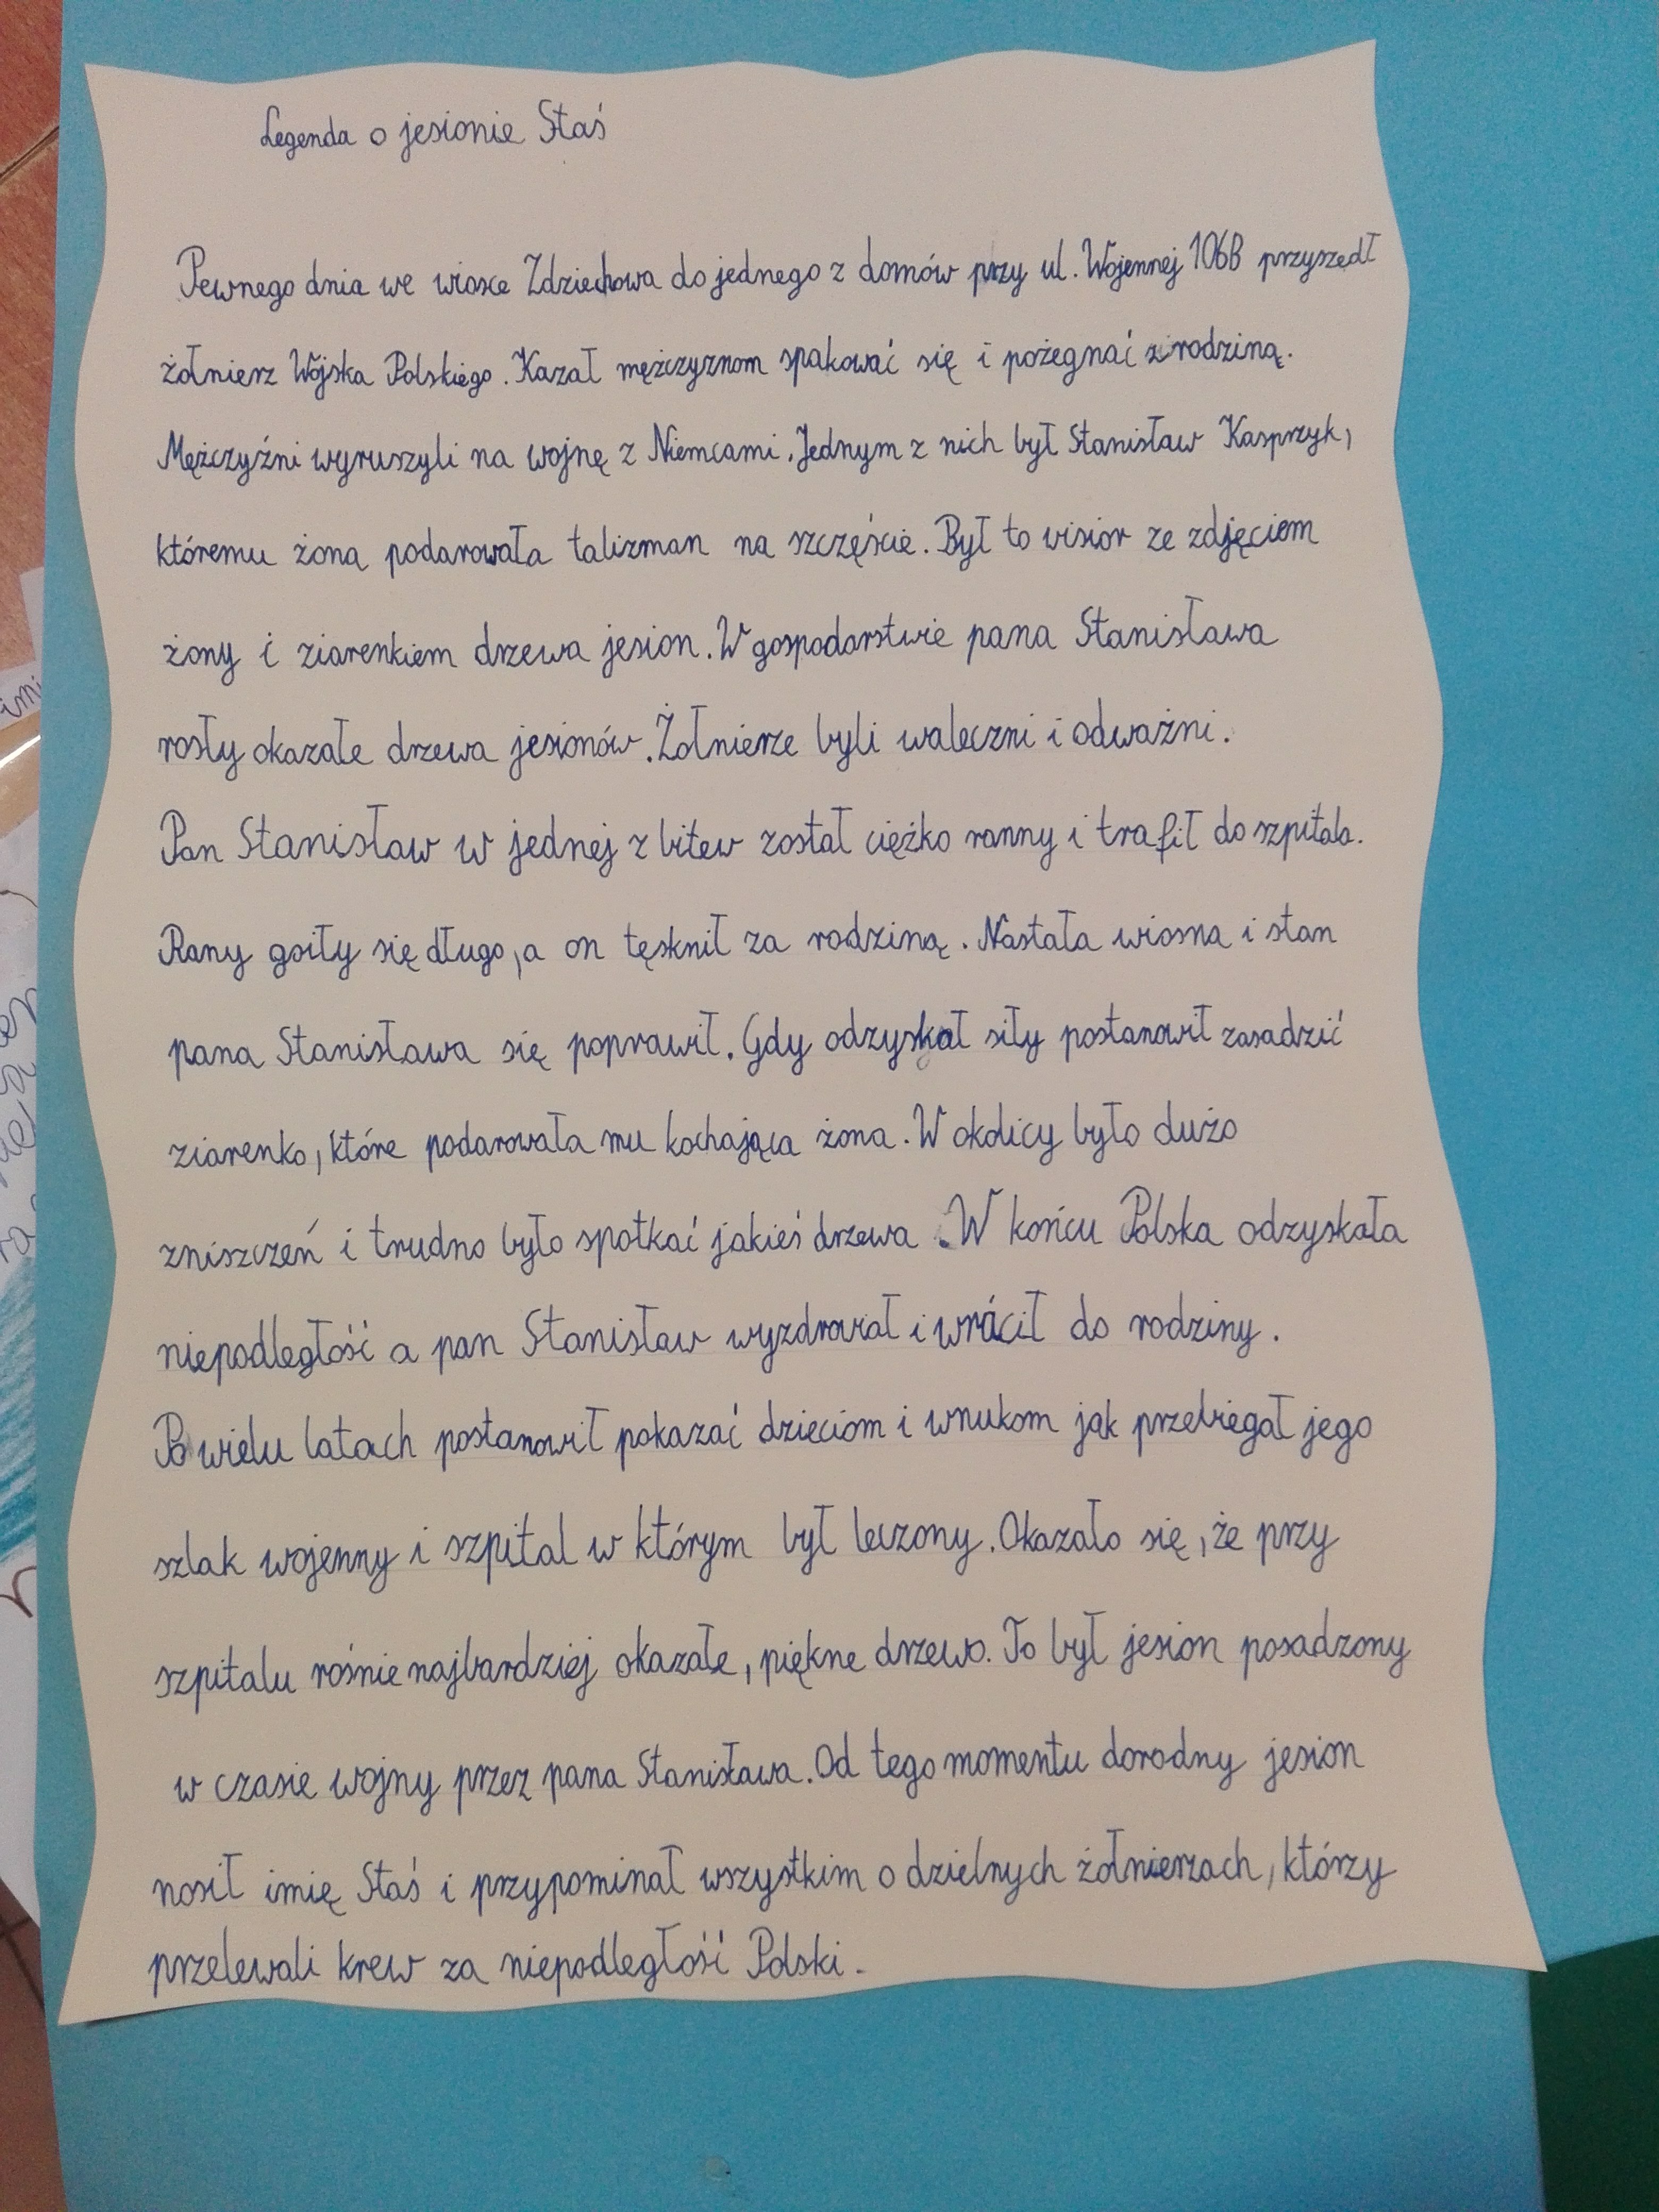 Legenda o jesionie Staś
Pewnego dnia we wiosce Zdziechowa do jednego z domów przy ul. Wojennej 106B przyszedł
żołnierz Wojska Polskiego. Kazał mężczyznom spakować się i pożegnać z rodziną.
Mężczyźni wyruszyli na wojnę z Niemcami. Jednym z nich był Stanisław Kasprzyk,
któremu żona podarowała talizman na szczęście. Był to wisior ze zdjęciem
żony i ziarenkiem drzewa jesion. W gospodarstwie pana Stanisława
rosły okazałe drzewa jesionów. Żołnierze byli waleczni i odważni.
Pan Stanisław w jednej z bitew został ciężko ranny i trafił do szpitala.
Rany goiły się długo, a on tęsknił za rodziną. Nastała wiosna i stan
pana Stanisława się poprawił. Gdy odzyskał siły postanowił zasadzić
ziarenko, które podarowała mu kochająca żona. W okolicy było dużo
zniszczeń i trudno było spotkać jakieś drzewa. W końcu Polska odzyskała
niepodległość a pan Stanisław wyzdrowiał i wrócił do rodziny.
Po wielu latach postanowił pokazać dzieciom i wnukom jak przebiegał jego
szlak wojenny i szpital w którym był leczony. Okazało się, że przy
szpitalu rośnie najbardziej okazałe, piękne drzewo. To był jesion posadzony
w czasie wojny przez pana Stanisława. Od tego momentu dorodny jesion
nosił imię Staś i przypominał wszystkim o dzielnych żołnierzach, którzy
przelewali krew za niepodległość Polski.